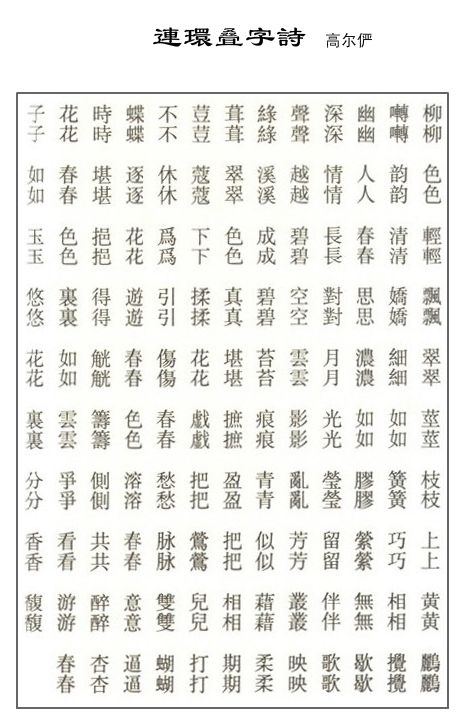 連環疊字詩 高尔俨
柳柳色色輕輕飄飄翠翠莖莖枝枝上上黄黄鸝鸝
囀囀韵韵清清嬌嬌細細如如簧簧巧巧相相攪攪
幽幽人人春春思思濃濃如如膠膠縈縈無無歇歇
深深情情長長對對月月光光瑩瑩留留伴伴歌歌
聲聲越越碧碧空空雲雲影影亂亂芳芳叢叢映映
綠綠溪溪成成碧碧苔苔痕痕青青似似藉藉柔柔
葺葺翠翠色色真真堪堪摭摭盈盈把把相相期期
荳荳蔻蔻下下揉揉花花戲戲把把鶯鶯兒兒打打
不不休休爲爲引引傷傷春春愁愁脉脉雙雙蝴蝴
蝶蝶逐逐花花遊遊春春色色溶溶春春意意逼逼
時時堪堪挹挹得得觥觥籌籌側側共共醉醉杏杏
花花春春色色裏裏如如雲雲爭爭看看游游春春
子子如如玉玉悠悠花花裏裏分分香香馥馥